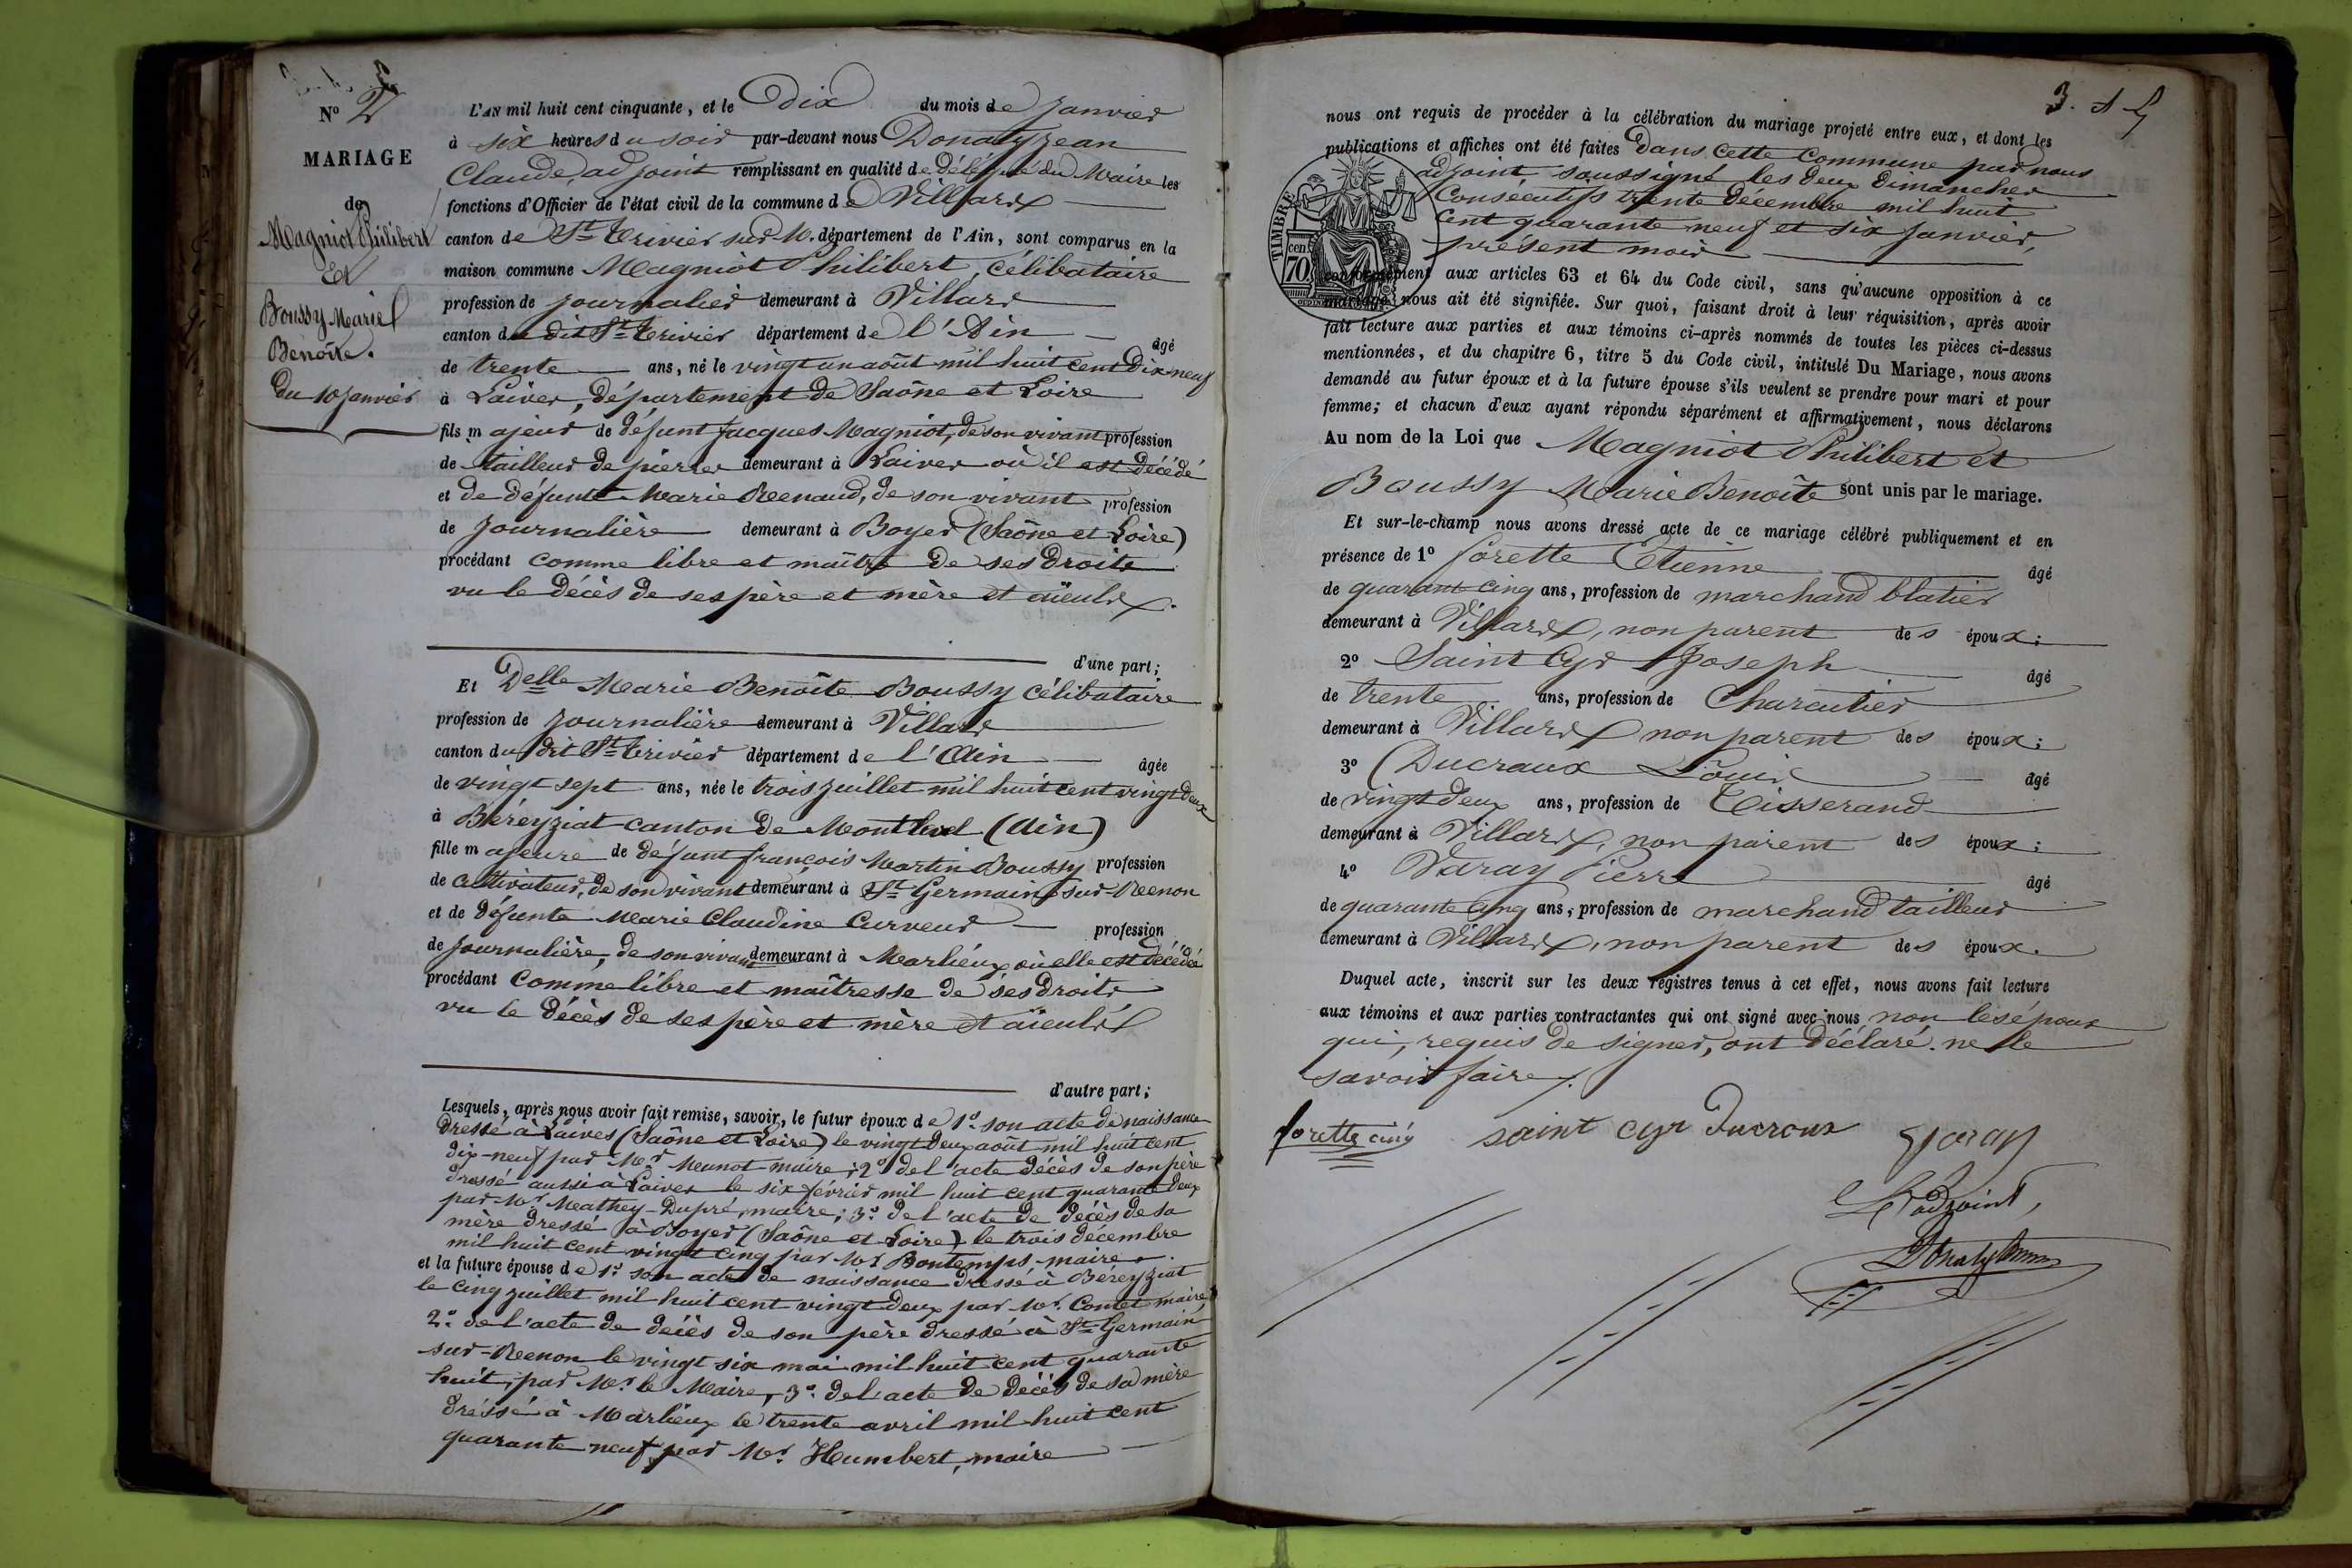 N° 2
MARIAGE
de
Magniot Philibert
Et
Boussy Marie
Benoîte.
Du 10 janvier
L'AN mil huit cent cinquante, et le Dix du mois de janvier
à six heures du soir par-devant nous Donaty Jean
Claude, adjoint remplissant en qualité de délégué du Maire les
fonctions d'Officier de l'état civil de la commune de Villars
canton de St Trivier sur M. département de l'Ain, sont comparus en la
maison commune Magniot Philibert, célibataire
profession de journalier demeurant à Villars
canton du dit St Trivier département de l'Ain âgé
de trente ans, né le vingt un août mil huit cent Dix-neuf
à Laives, département de Saône et Loire
fils majeur de défunt Jacques Magniot, de son vivant profession
de tailleur de pierres demeurant à Laives où il est décédé
et de défunte Marie Renaud, de son vivant profession
de journalière demeurant à Boyer (Saône et Loire)
procédant comme libre et maître de ses droits
vu le décès de ses père et mère et aïeuls.
d'une part;
Et Delle Marie Benoîte Boussy célibataire
profession de journalière demeurant à Villars
canton du dit St Trivier département de l'Ain âgée
de vingt sept ans, née le trois juillet mil huit cent vingt deux
à Béréyziat canton de Montrevel (Ain)
fille majeure de défunt françois Martin Boussy profession
de cultivateur, de son vivant demeurant à St Germain sur-Renon
et de défunte Marie Claudine Curveur profession
de journalière, de son vivant demeurant à Marlieux où elle est décédée
procédant comme libre et maîtresse de ses droits
vu le décès de ses père et mère et aïeuls
d'autre part;
Lesquels, après nous avoir fait remise, savoir, le futur époux de 1° son acte de naissance
dressé à Laives (Saône et Loire) le vingt deux août mil huit cent
dix-neuf par Mr Meunot maire; 2° de l'acte décès de son père
dressé aussi à Laives le six février mil huit cent quarante deux
par Mr Mathey-Dupré, maire; 3° de l'acte de décès de sa
mère dressé à Boyer (Saône et Loire) le trois décembre
mil huit cent vingt cinq par Mr Bontemps, maire.
et la future épouse de 1° son acte de naissance dressé à Béréyziat
le cinq juillet mil huit cent vingt deux par Mr. Contet maire,
2° de l'acte de décès de son père dressé à St Germain
sur-Renon le vingt six mai mil huit cent quarante
huit, par Mr. le Maire, 3° de l'acte de décès de sa mère
dressé à Marlieux le trente avril mil huit cent
quarante neuf par Mr. Humbert, maire
3.
nous ont requis de procéder à la célébration du mariage projeté entre eux, et dont les
publications et affiches ont été faites dans cette commune par nous
adjoint soussigné les deux dimanches
consécutifs trente décembre mil huit
cent quarante neuf et six janvier,
présent mois
TIMBRE
cen
70
conformément aux articles 63 et 64 du Code civil, sans qu'aucune opposition à ce
mariage nous ait été signifiée. Sur quoi, faisant droit à leur réquisition, après avoir
fait lecture aux parties et aux témoins ci-après nommés de toutes les pièces ci-dessus
mentionnées, et du chapitre 6, titre 5 du Code civil, intitulé Du Mariage, nous avons
demandé au futur époux et à la future épouse s'ils veulent se prendre pour mari et pour
femme; et chacun d'eux ayant répondu séparément et affirmativement, nous déclarons
Au nom de la Loi que Magniot Philibert et
Boussy Marie Benoîte sont unis par le mariage.
Et sur-le-champ nous avons dressé acte de ce mariage célébré publiquement et en
présence de 1° forette Etienne âgé
de quarante cinq ans, profession de marchand blatier
demeurant à Villars, non parent des époux;
2° Saint Cyr Joseph âgé
de trente ans, profession de Charcutier
demeurant à Villars non parent des époux;
3° Ducraux Louis âgé
de vingt deux ans, profession de Tisserand
demeurant à Villars, non parent des époux;
4° Varay Pierre âgé
de quarante cinq ans, profession de marchand tailleur
demeurant à Villars, non parent des époux.
Duquel acte, inscrit sur les deux registres tenus à cet effet, nous avons fait lecture
aux témoins et aux parties contractantes qui ont signé avec nous non les époux
qui, requis de signer, ont déclaré ne le
savoir faire.
forette saint cyr Ducroux Varay
L'adjoint,
Donaty